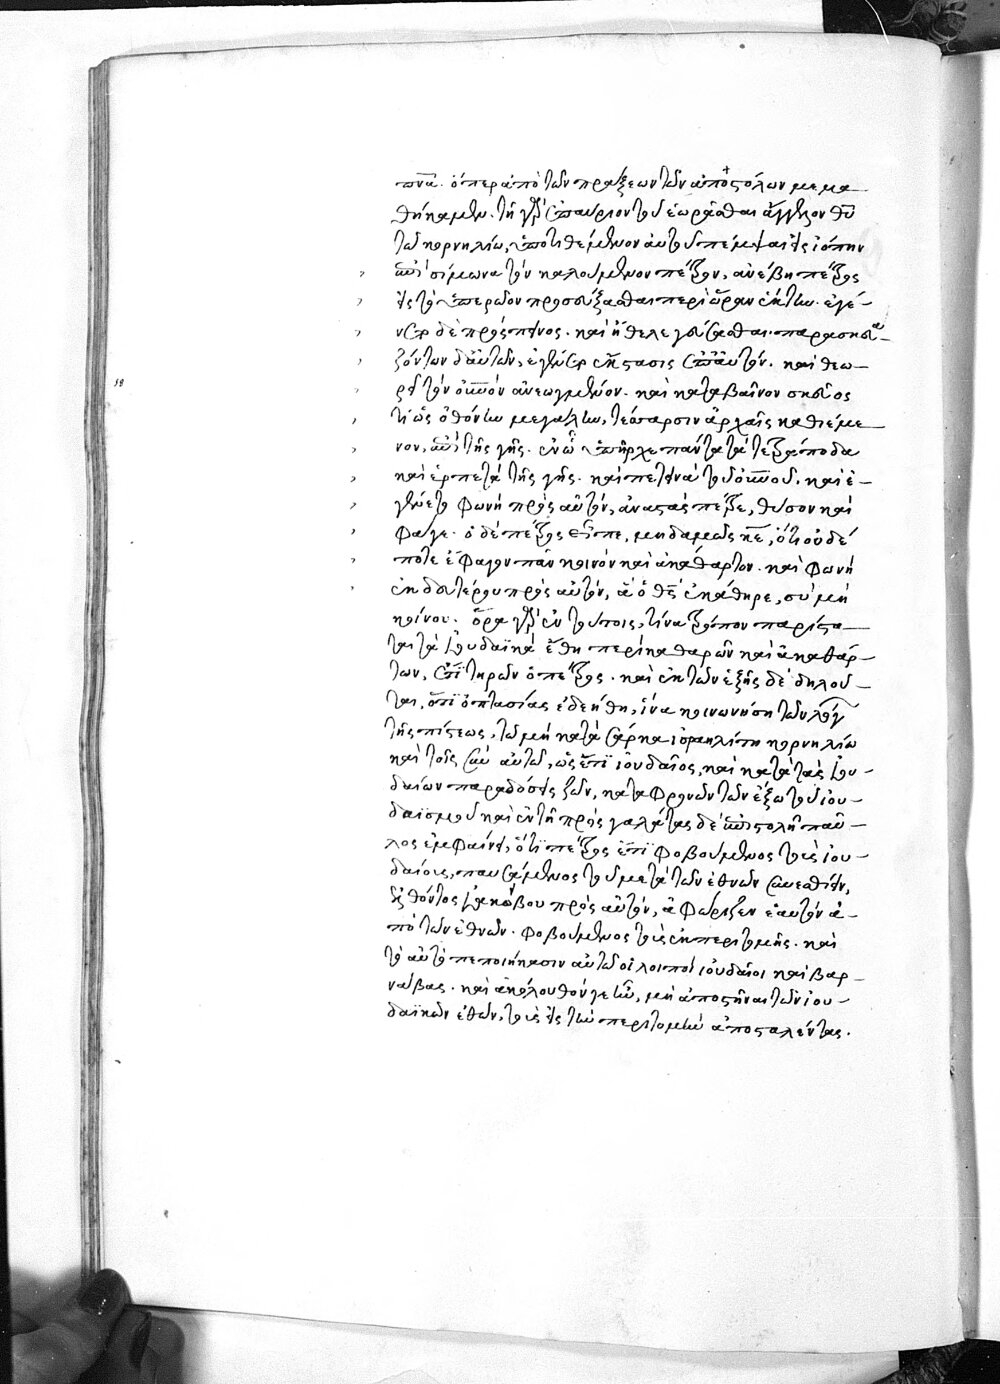 πνα. ὅπερ ἀπὸ τῶν πράξεων τῶν ἀποστόλων μεμα
θήκαμεν. τῇ γὰρ ἐπαύριον τοῦ ἑωρᾶσθαι ἄγγελον θυ
τῷ κορνηλίῳ, ὑποτιθέμενον αὐτῷ πέμψαι εἰς ἰόππην
ἐπὶ σίμωνα τὸν καλούμενον πέτρον, ἀνέβη πέτρος
εἰς τὸ ὑπερῶον προσεύξασθαι περὶ ὥραν ἕκτην. ἐγέ-
νετο δὲ πρόσπεινος. καὶ ἤθελε γεύσασθαι. παρασκευα
ζόντων δὲ αὐτῶν, ἐγένετο ἔκστασις ἐπ' αὐτόν. καὶ θεω-
ρεῖ τὸν οὐνὸν ἀνεωγμένον. καὶ καταβαῖνον σκεῦος
τι ὡς ὀθόνην μεγάλην, τέσσαρσιν ἀρχαῖς καθιέμε
νον, ἐπὶ τῆς γῆς. ἐν ᾧ ὑπῆρχε πάντα τὰ τετράποδα
καὶ ἑρπετὰ τῆς γῆς. καὶ πετεινὰ τοῦ οὐνοῦ. καὶ ἐ-
γένετο φωνὴ πρὸς αὐτὸν, ἀναστὰς πέτρε, θῦσον καὶ
φάγε. ὁ δὲ πέτρος εἶπε, μηδαμῶς κε, ὅτι οὐδέ
ποτε ἔφαγον πᾶν κοινὸν καὶ ἀκάθαρτον. καὶ φωνὴ
ἐκ δευτέρου πρὸς αὐτόν, ἃ ὁ θς ἐκάθηρε, σὺ μὴ
κοίνου. ὅρα γὰρ ἐν τούτοις, τίνα τρόπον παρίστα
ται τὰ ἰουδαϊκὰ ἔθη περὶ καθαρῶν καὶ ἀκαθάρ-
των, ἔτι τηρῶν ὁ πέτρος. καὶ ἐκ τῶν ἑξῆς δὲ δηλοῦ-
ται, ὅτι ὀπτασίας ἐδεήθη, ἵνα κοινωνήσῃ τῶν λόγ
τῆς πίστεως, τῷ μὴ κατὰ σάρκα ἰσραηλίτῃ κορνηλίῳ
καὶ τοῖς σὺν αὐτῷ, ὡς ἔτι ἰουδαῖος, καὶ κατὰ τὰς ἰου-
δαίων παραδόσεις ζῶν, καταφρονῶν τῶν ἔξω τοῦ ἰου-
δαϊσμοῦ καὶ ἐν τῇ πρὸς γαλάτας δὲ ἐπιστολῇ παῦ-
λος ἐμφαίνει, ὅτι πέτρος ἔτι φοβούμενος τοὺς ἰου-
δαίους, παυσάμενος τοῦ μετὰ τῶν ἐθνῶν συνεσθίειν,
ἐλθόντος ἰακώβου πρὸς αὐτὸν, ἀφώριζεν ἑαυτὸν ἀ-
πὸ τῶν ἐθνῶν. φοβούμενος τοὺς ἐκ περιτομῆς. καὶ
τὸ αὐτὸ πεποιήκασιν αὐτῷ οἱ λοιποὶ ἰουδαῖοι καὶ βαρ-
νάβας. καὶ ἀκόλουθόν γε ἦν, μὴ ἀποστῆναι τῶν ἰου-
δαϊκῶν ἐθῶν, τοὺς εἰς τὴν περιτομὴν ἀποσταλέντας.